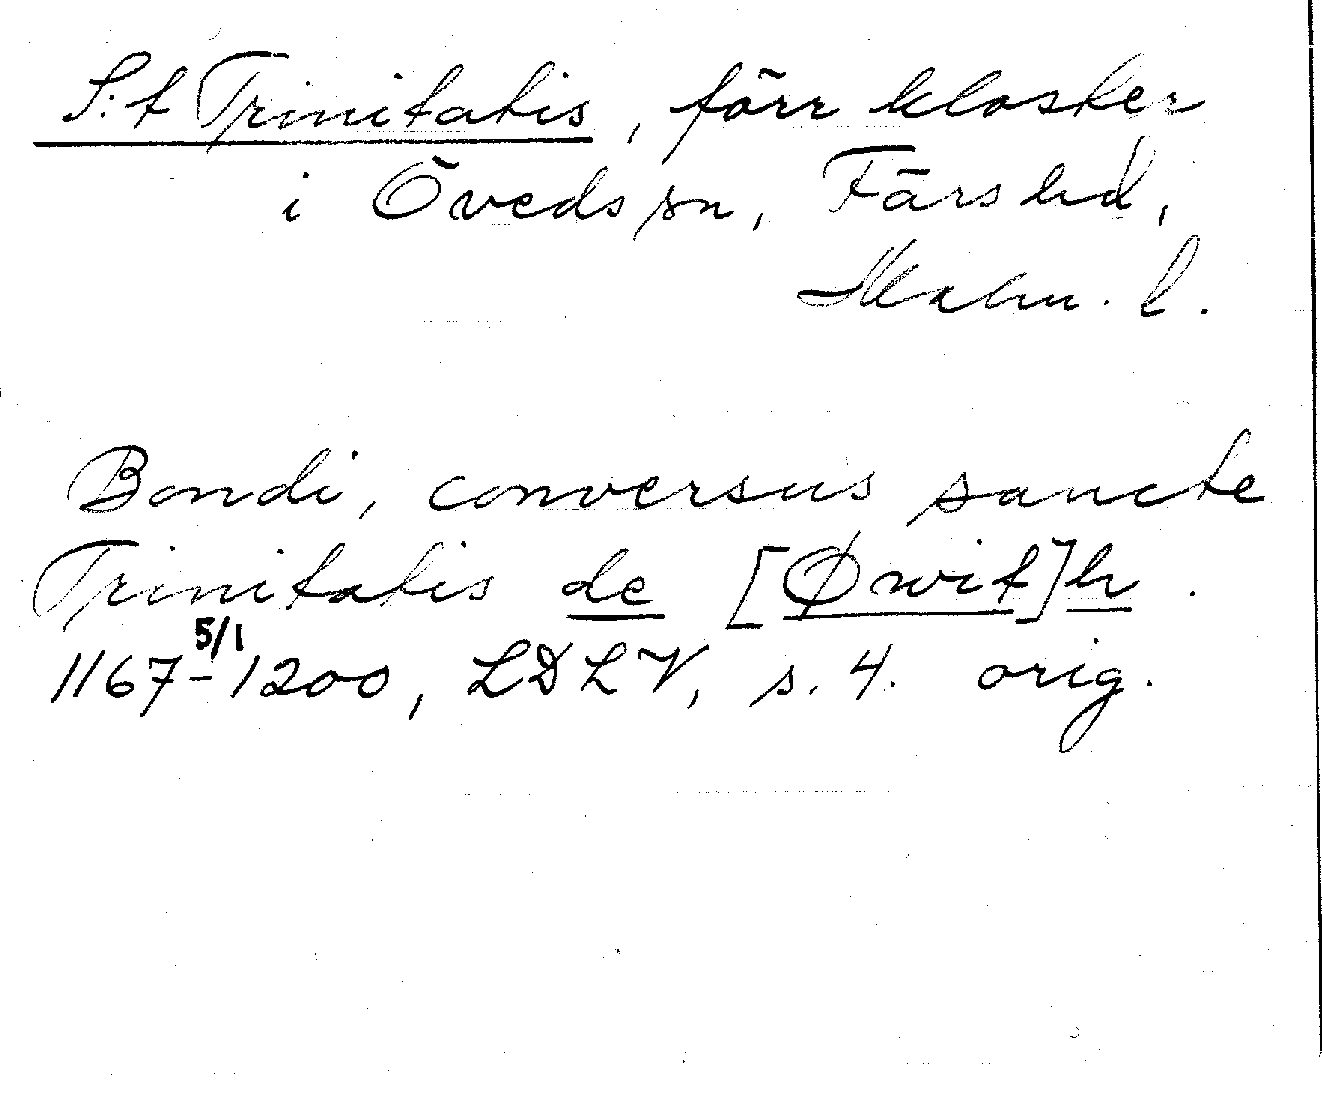 S:t Trinitatis, förr kloster
i Öveds sn, Färs hd,
Malm. l.
Bondi, conversus sancte
Trinitatis de [Øwit]h.
5/1
1167-1200, LDLV, s. 4. orig.